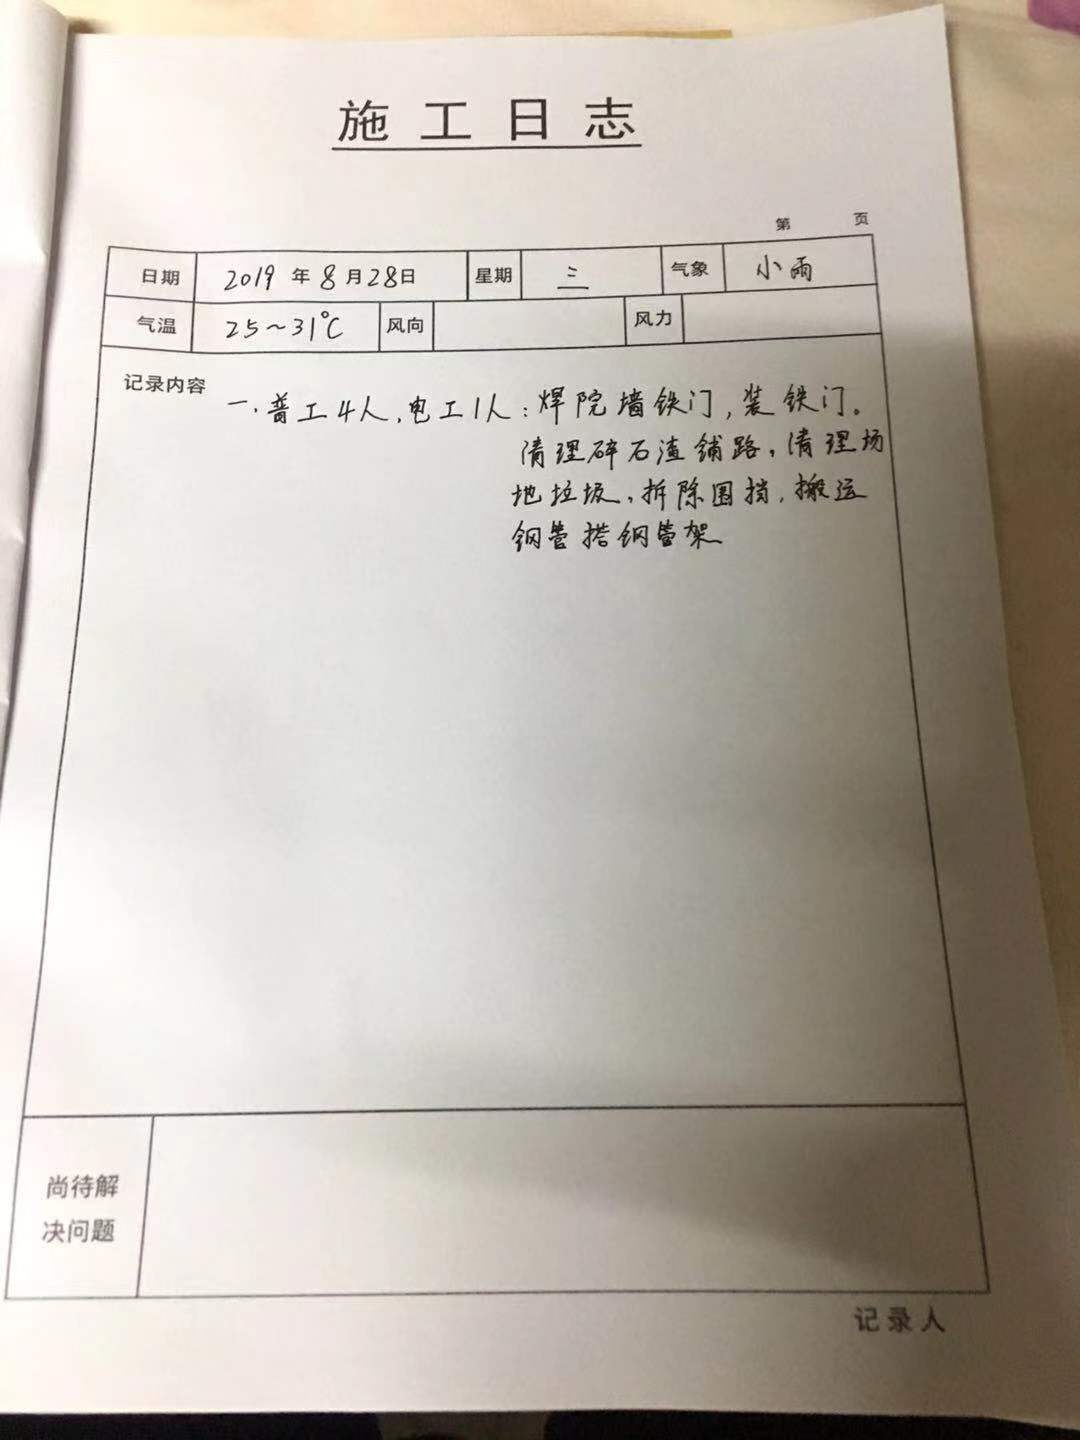 施工日志
第 页
日期 2019年8月28日 星期 三 气象 小雨
气温 25~31℃ 风向 风力
记录内容 一.普工4人,电工1人:焊院墙铁门,装铁门。
清理碎石渣铺路,清理场
地垃圾,拆除围挡,搬运
钢管搭钢管架
尚待解
决问题
记录人